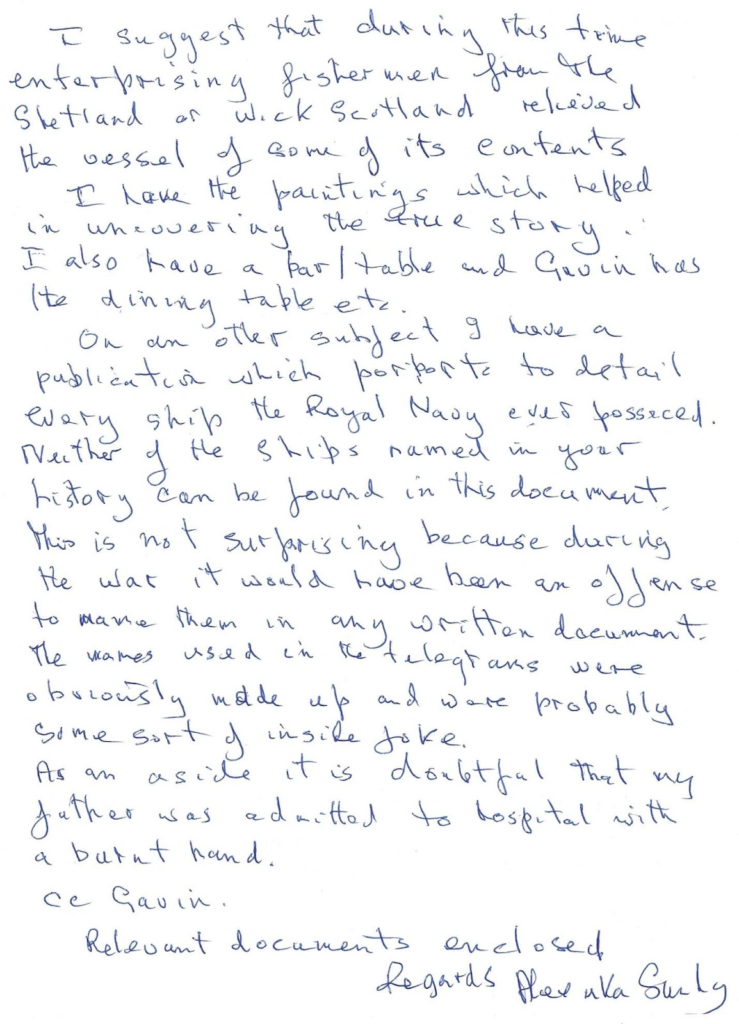 I suggest that during this time
enterprising fishermen from the
Shetland or Wick Scotland relieved
the vessel of some of its contents
I have the paintings which helped
in uncovering the true story.
I also have a bar/table and Gavin has
the dining table etc.
On an other subject I have a
publication which porports to detail
every ship the Royal Navy ever posseced.
Neither of the ships named in your
history can be found in this document.
This is not surprising because during
the war it would have been an offense
to name them in any written document.
The names used in the telegrams were
obviously made up and were probably
some sort of inside joke.
As an aside it is doubtful that my
father was admitted to hospital with
a burnt hand.
cc Gavin.
Relevant documents enclosed
Regards Alex aka